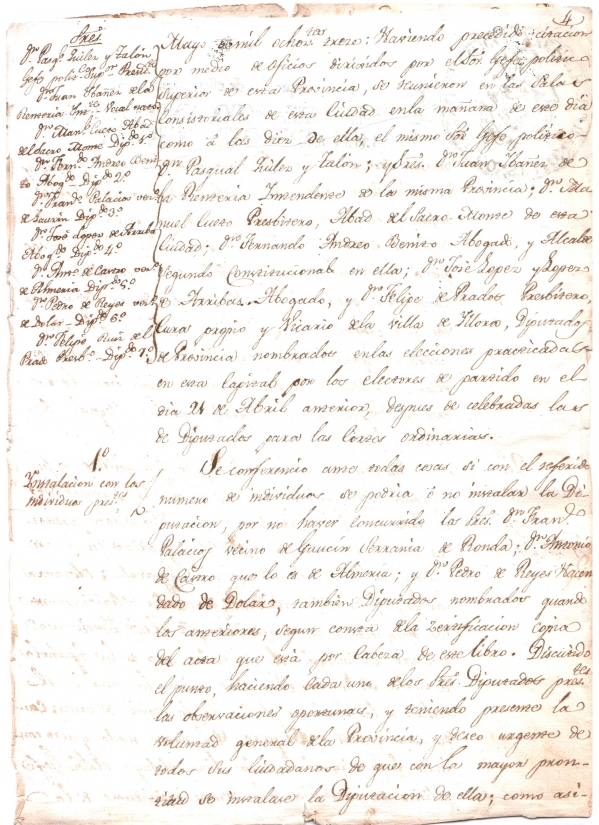 4
Sres
Dn. Pasql. Quiler y Talón
Gefe polit. Supr. Presid.te
Dn. Juan Ibañez de la
Renteria Int.te Vocal nato
Dn. Manl. Cueto Abad
del Sacro Monte Dip.do 1º
Dn. Fern.do Andreo Beni-
to Abog.do Dip.do 2º
Dn. Fran.co Palacios vec.o
de Gaucin Dip.do 3º
Dn. José Lopez de Arriba
Abog.do Dip.do 4º
Dn. Ant.o de Castro vec.o
de Almeria Dip.do 5º
Dn. Pedro de Reyes vec.o
de Dolar Dip.do 6º
Dn. Felipe Ruiz del
Prado Presb.o Dip.do 7º
Mayo mil ochoc.tos trece: Haviendo precedido citacion
por medio de oficios dirigidos por el Sor. Gefe politico
Superior de esta Provincia, se reunieron en las Salas
Consistoriales de esta Ciudad en la mañana de este dia
como á las diez de ella, el mismo Sor. Gefe politico
Dn. Pasqual Quiler y Talón; y Sres. Dn. Juan Ibañez de
la Renteria Intendente de la misma Provincia; Dn. Ma-
nuel Cueto Presbitero, Abad del Sacro Monte de esta
Ciudad; Dn. Fernando Andreo Benito Abogado, y Alcalde
Segundo Constitucional en ella; Dn. José Lopez y Lopez
de Arribas Abogado, y Dn. Felipe de Prados Presbitero
Cura propio y Vicario de la Villa de Illora, Diputados
de Provincia nombrados en las elecciones practicadas
en esta Capital por los electores de partido en el
dia 21 de Abril anterior, despues de celebradas las
de Diputados para las Cortes ordinarias.
1º
Instalacion con los
individuos pres.tes
Se conferenció ante todas cosas si con el referido
numero de individuos se podria ó no instalar la Di-
putacion, por no haver concurrido los Sres. Dn. Fran.co
Palacios vecino de Gaucin Serrania de Ronda; Dn. Antonio
de Castro que lo es de Almeria; y Dn. Pedro de Reyes Hacen-
dado de Dolar, tambien Diputados nombrados quando
los anteriores, segun consta de la Zertificacion copia
del acta que está por cabeza de este libro. Discutido
el punto, haciendo cada uno de los Sres. Diputados pres.tes
las observaciones oportunas, y teniendo presente la
voluntad general de la Provincia, y deseo urgente de
todos sus ciudadanos de que con la mayor pron-
titud se instalase la Diputacion de ella; como asi-